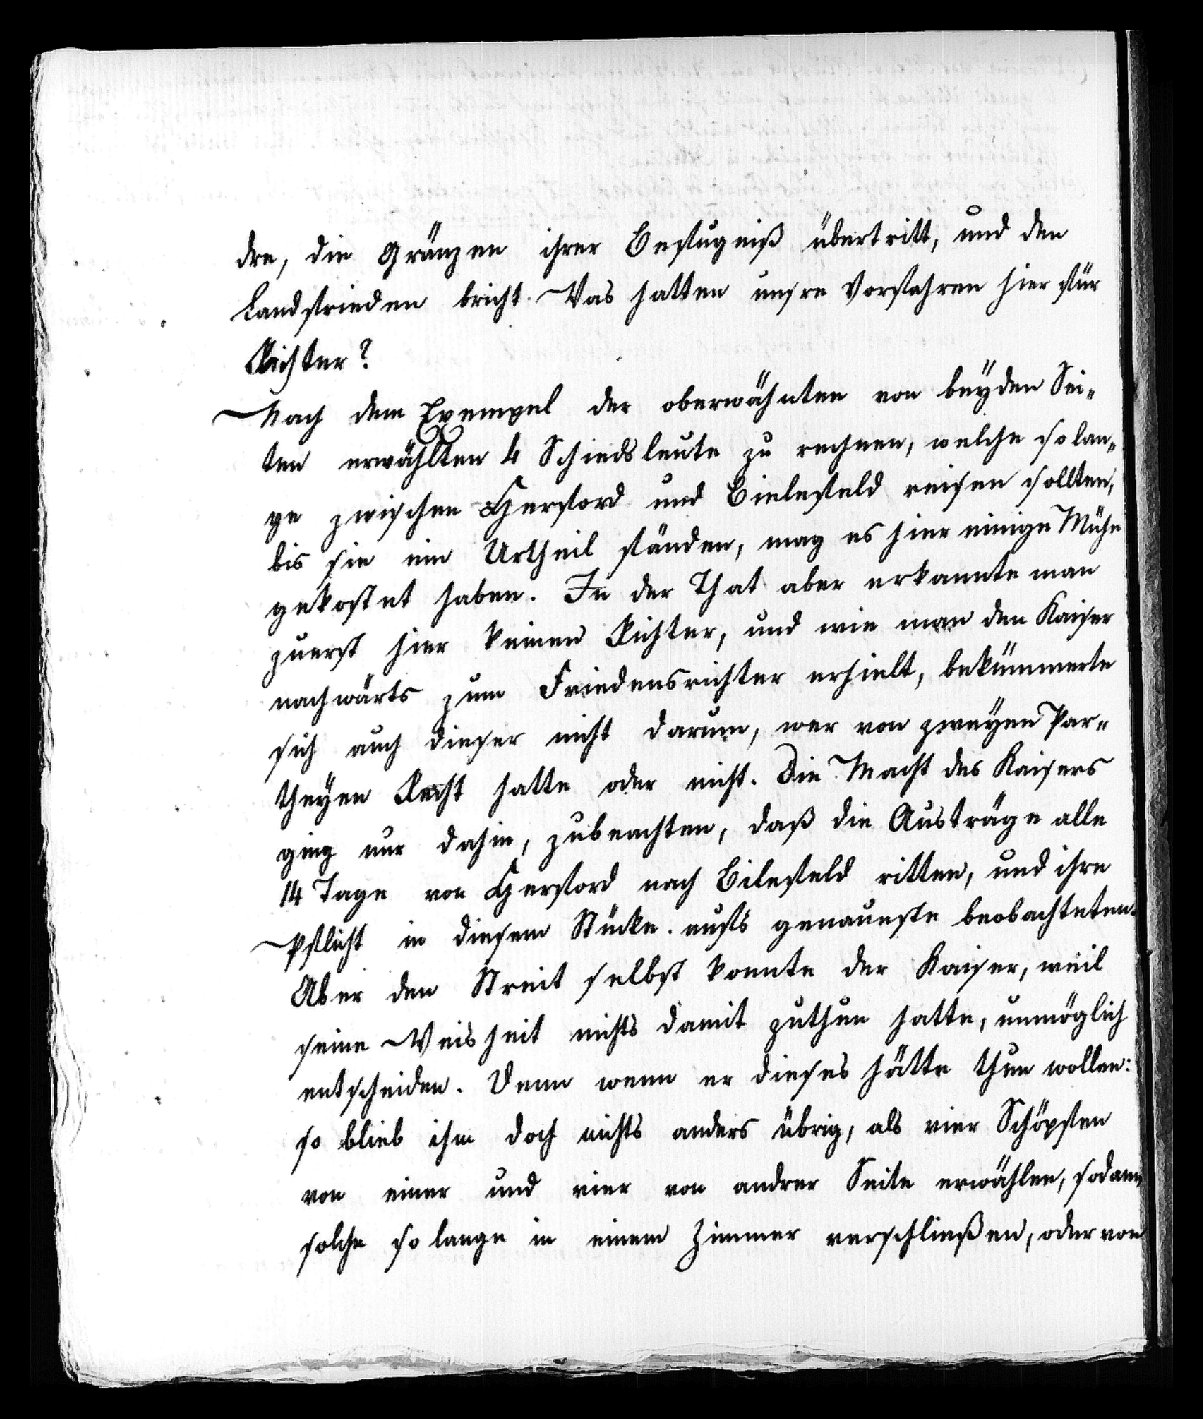 dre, die Gränzen ihrer Befugniß übertritt, und den
Landfrieden bricht. Was hatten unsre Vorfahren hier für
Richter?
Nach dem Exempel der oberwähnten von beyden Sei-
ten erwählten 4 Schiedsleute zu rechnen, welche so lan-
ge zwischen Herford und Bielefeld reisen sollten,
bis sie ein Urtheil fänden, mag es hier einige Mühe
gekostet haben. In der That aber erkannte man
zuerst hier keinen Richter, und wie man den Kaiser
nachwärts zum Friedensrichter erhielt, bekümmerte
sich auch dieser nicht darum, wer von zweyen Par-
theyen Recht hatte oder nicht. Die Macht des Kaisers
ging nur dahin, zubeachten, daß die Austräge alle
14 Tage von Herford nach Bilefeld ritten, und ihre
Pflicht in diesem Stücke aufs genaueste beobachteten.
Aber den Streit selbst konnte der Kaiser, weil
seine Weisheit nichts damit zuthun hatte, unmöglich
entscheiden. Denn wenn er dieses hätte thun wollen:
so blieb ihm doch nichts anders übrig, als vier Schöpfen
von einer und vier von andrer Seite erwählen, sodann
solche so lange in einem Zimmer verschließen, oder von